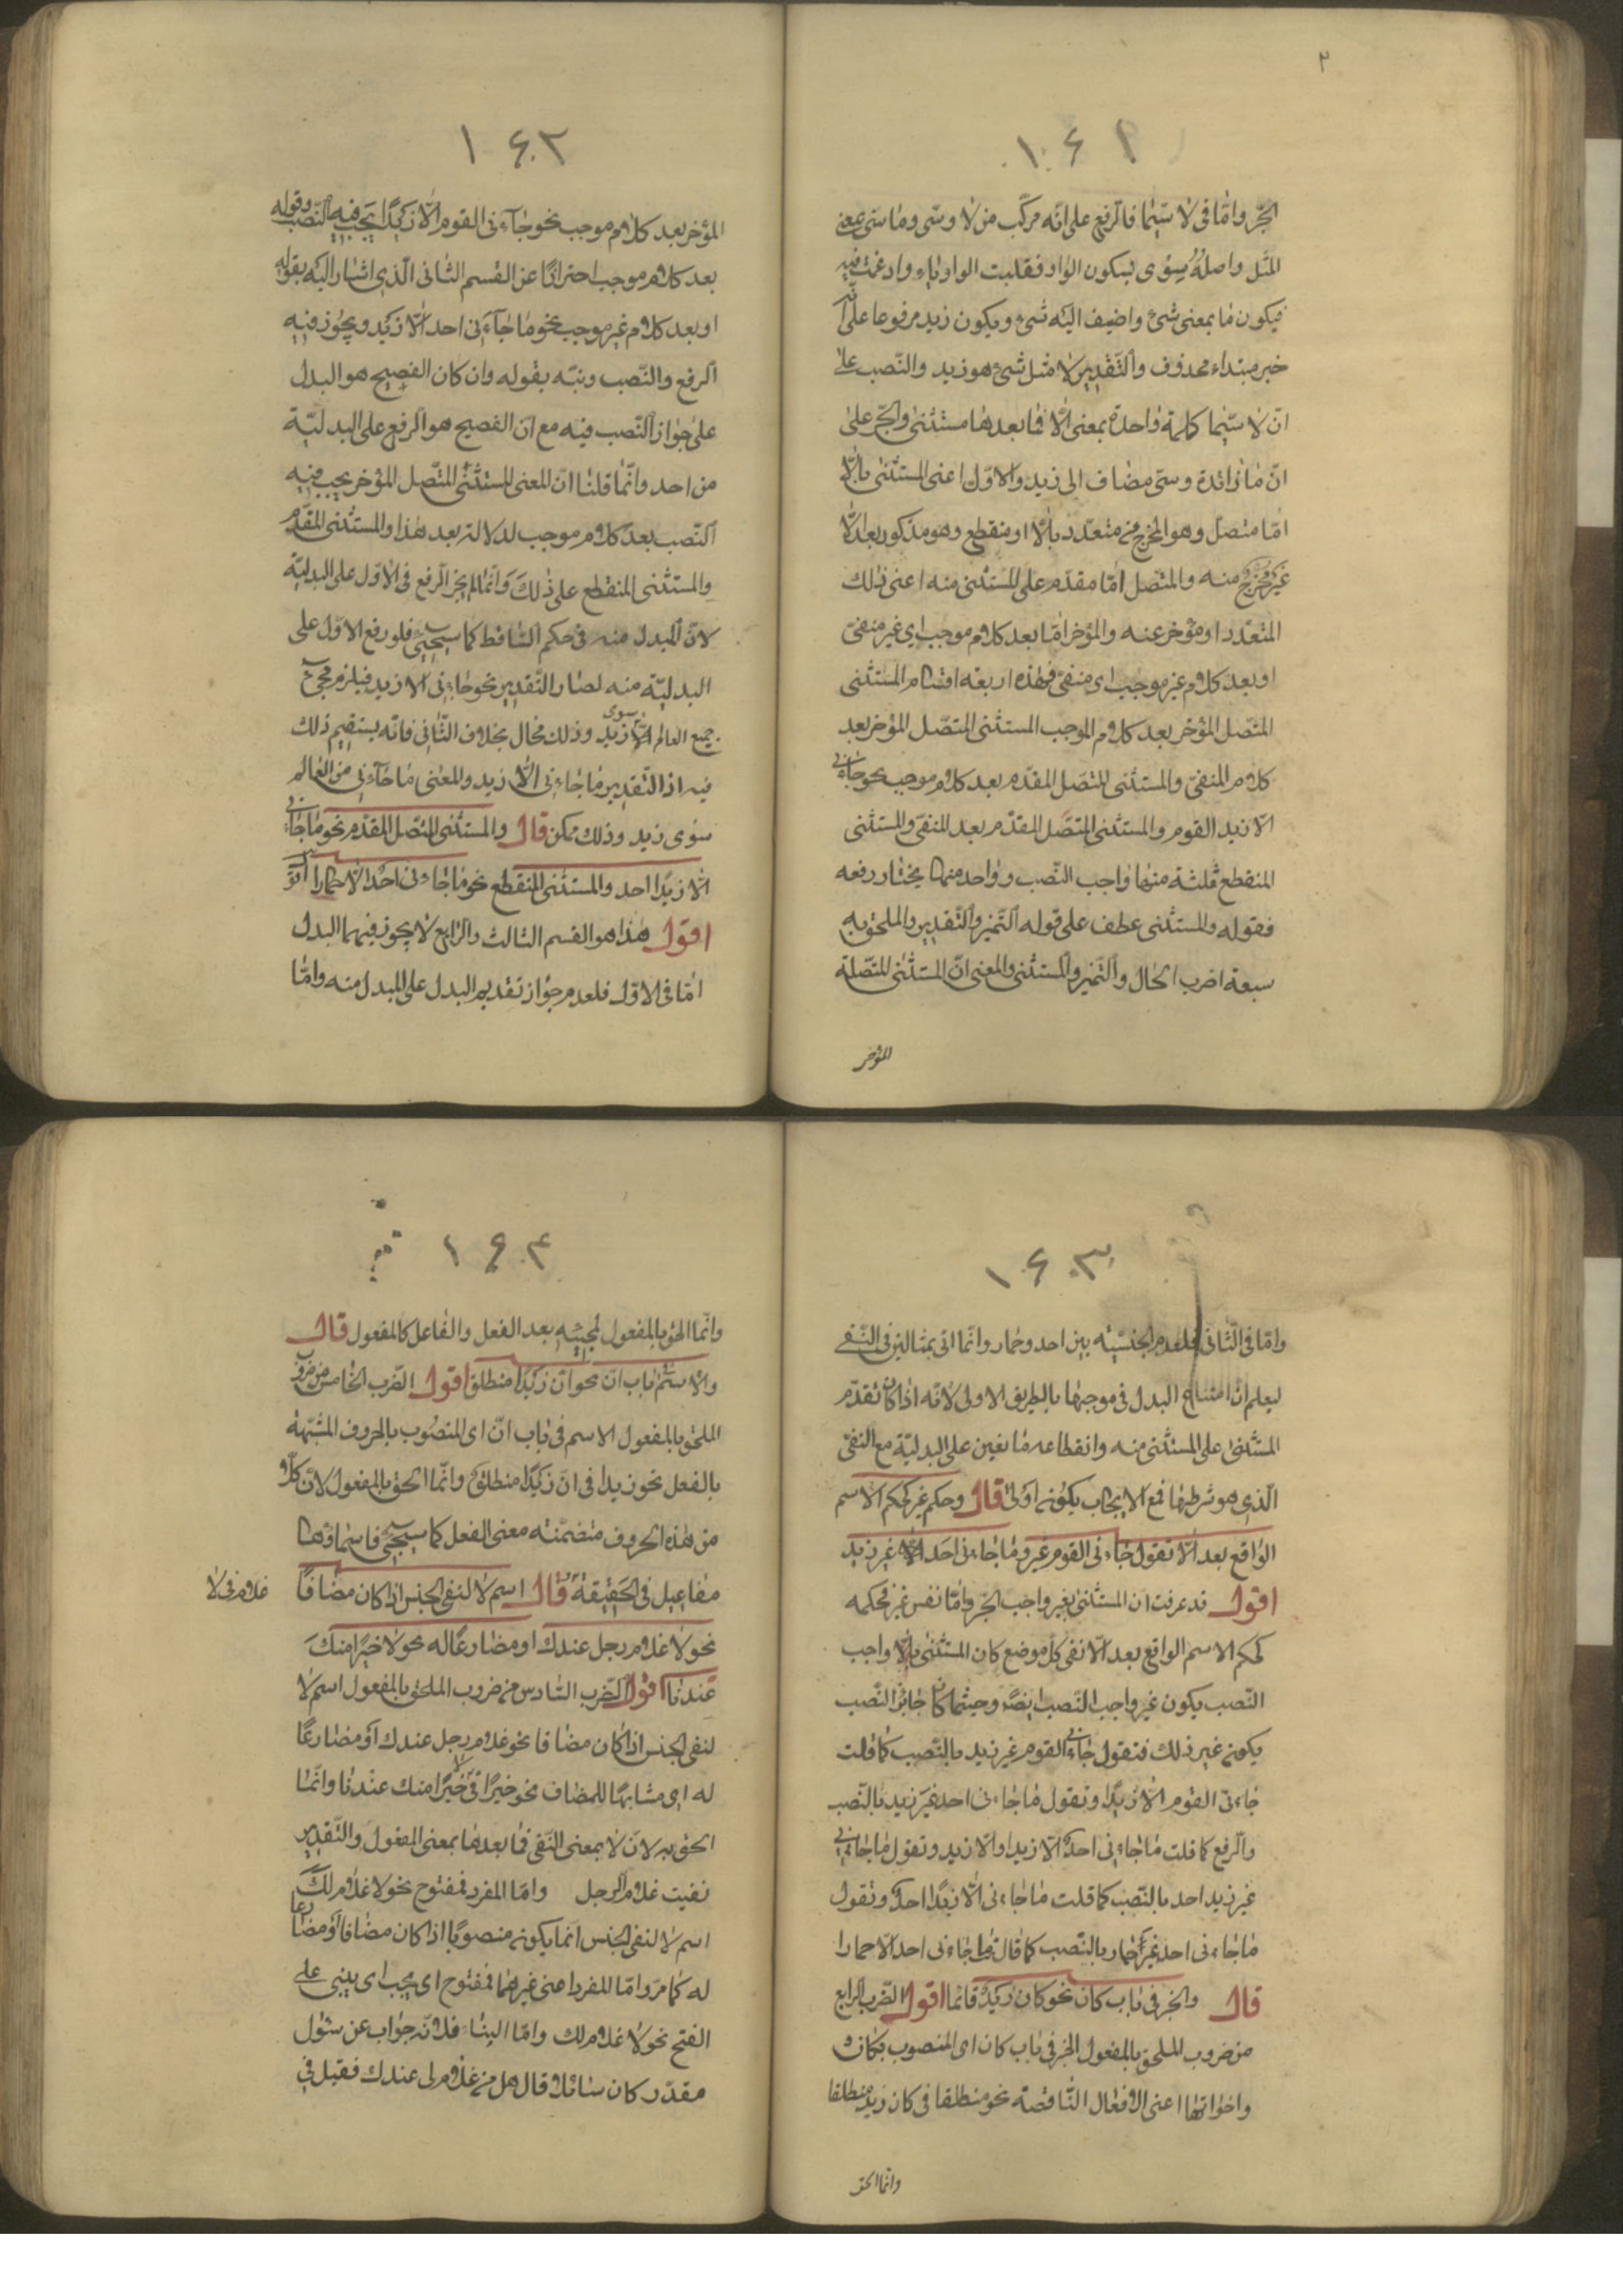 ٢
١٦١
الجرّ وامّا فى لا سيّما فالرفع على انّه مركّب من لا وسى وما سى بمعنى
المثل واصله سوى بسكون الواو فقلبت الواو ياء وادغمت فيه
فيكون ما بمعنى شئ واضيف اليه شئ ويكون زيد مرفوعا على انّه
خبر مبتداء محذوف والتّقدير لا مثل شئ هو زيد والنّصب على
انّ لا سيّما كلمة واحدة بمعنى الّا فما بعدها مستثنى والجرّ على
انّ ما زائدة وسىّ مضاف الى زيد والاوّل اعنى المستثنى بالّا
امّا متصل وهو المخرج من متعدّد بالّا او منقطع وهو مذكور بعد الّا
غير مخرج منه والمتّصل امّا مقدّم على المستثنى منه اعنى ذلك
المتعدّد او مؤخر عنه والمؤخر امّا بعد كلام موجب اى غير منفىّ
او بعد كلام غير موجب اى منفىّ فهذه اربعة اقسام المستثنى
المتصل المؤخر بعد كلام الموجب المستثنى المتصل المؤخر بعد
كلام المنفىّ والمستثنى المتصل المقدّم بعد كلام موجب نحو جاءنى
الّا زيد القوم والمستثنى المتصل المقدّم بعد المنفىّ والمستثنى
المنقطع فثلثة منها واجب النّصب وواحد منها يختار رفعه
فقوله والمستثنى عطف على قوله التّميز والتّقدير والملحق به
سبعة اضرب الحال والتّميز والمستثنى والمعنى انّ المستثنى المتصلة
المؤخر
١٦٢
المؤخر بعد كلام موجب نحو جاءنى القوم الّا زيدًا يجب فيه النّصب وقوله
بعد كلام موجب احترازًا عن القسم الثانى الّذى اشار اليه بقوله
او بعد كلام غير موجب نحو ما جاءنى احد الّا زيد ويجوز فيه
الرفع والنّصب ونبّه بقوله وان كان الفصيح هو البدل
على جواز النّصب فيه مع انّ الفصيح هو الرفع على البدليّة
من احد وانّما قلنا انّ المعنى المستثنى المتّصل المؤخر يجب فيه
النّصب بعد كلام موجب لدلالته بعد هذا والمستثنى المقدّم
والمستثنى المنقطع على ذلك وانّما لم يجز الرفع فى الاوّل على البدليّة
لانّ المبدل منه فى حكم السّاقط كما سيجئ فلو رفع الاوّل على
البدليّة منه لصار التّقدير نحو جاءنى الا زيد فيلزم مجئ
جميع العالم سوى زيد وذلك محال بخلاف الثّانى فانّه يستقيم ذلك
فيه اذ التّقدير ما جاءنى الّا زيد والمعنى ما جاءنى من العالم
سوى زيد وذلك ممكن قال والمستثنى المتصل المقدّم نحو ما جاءنى
الّا زيدًا احد والمستثنى المنقطع نحو ما جاءنى احد الّا حمارا
اقول هذا هو القسم الثالث والرابع لا يجوز فيهما البدل
امّا فى الاوّل فلعدم جواز تقديم البدل على المبدل منه وامّا
١٦٣
وامّا فى الثّانى فلعدم الجنسيّة بين احد وحمار وانّما اتى بمثالين فى النّفى
ليعلم انّ امتناع البدل فى موجبها بالطريق الاولى لانّه اذا كان تقدّم
المستثنى على المستثنى منه وانقطاعه مانعين على البدليّة مع النفى
الّذى هو شرطها فمع الايجاب يكونه اولى قال وحكم غير كحكم الاسم
الواقع بعد الّا تقول جاءنى القوم غير وما جاءنى احد غير زيد
اقول قد عرفت ان المستثنى بغير واجب الجرّ وامّا نفس غير فحكمه
كحكم الاسم الواقع بعد الّا ففى كلّ موضع كان المستثنى بالّا واجب
النّصب يكون غير واجب النّصب ايضًا وحيثما كان جائز النّصب
يكونه غير ذلك فتقول جاءنى القوم غير زيد بالنّصب كما قلت
جاءنى القوم الّا زيدًا وتقول ما جاءنى احد غير زيد بالنّصب
والرفع كما قلت ما جاءنى احد الّا زيدا والّا زيد وتقول ما جاءنى
غير زيد احد بالنّصب كما قلت ما جاءنى الّا زيدًا احد وتقول
ما جاءنى احد غير حمار بالنّصب كما قال ما جاءنى احد الّا حمارا
قال والخبر فى باب كان نحو كان زيد قائما اقول الضرب الرابع
من ضروب الملحق بالمفعول الخبر فى باب كان اى المنصوب بكان
واخواتها اعنى الافعال النّاقصة نحو منطلقا فى كان زيد منطلقا
وانّما الحق
١٦٤
وانّما الحق بالمفعول لمجيئه بعد الفعل والفاعل كالمفعول قال
والاسم فى باب انّ نحو انّ زيدًا منطلق اقول الضرب الخامس من ضروب
الملحق بالمفعول الاسم فى باب انّ اى المنصوب بالحروف المشبّهة
بالفعل نحو زيدا فى انّ زيدًا منطلق وانّما الحق بالمفعول لانّ كلّا
من هذه الحروف متضمّنة معنى الفعل كما سيجئ فاسماؤها
مفاعيل فى الحقيقة قال اسم لا لنفى الجنس اذا كان مضافًا
غلام فى لا
نحو لا غلام رجل عندك او مضارعًا له نحو لا خيرًا منك
عندنا اقول الضّرب السّادس من ضروب الملحق بالمفعول اسم لا
لنفى الجنس اذا كان مضافا نحو غلام رجل عندك او مضارعًا
له اى مشابهًا للمضاف نحو خيرًا فى لا خيرًا منك عندنا وانّما
الحق به لانّ لا بمعنى النّفى فما بعدها بمعنى المفعول والتّقدير
نفيت غلام الرجل وامّا المفرد فمفتوح نحو لا غلام لك
اسم لا لنفى الجنس انّما يكونه منصوبًا اذا كان مضافا او مضارعا
له كما مرّ وامّا المفرد اعنى غيرهما فمفتوح اى يجب اى يبنى على
الفتح نحو لا غلام لك وامّا البناء فلانّه جواب عن سئول
مقدّر كان سائلا قال هل من غلام لى عندك فقيل فى